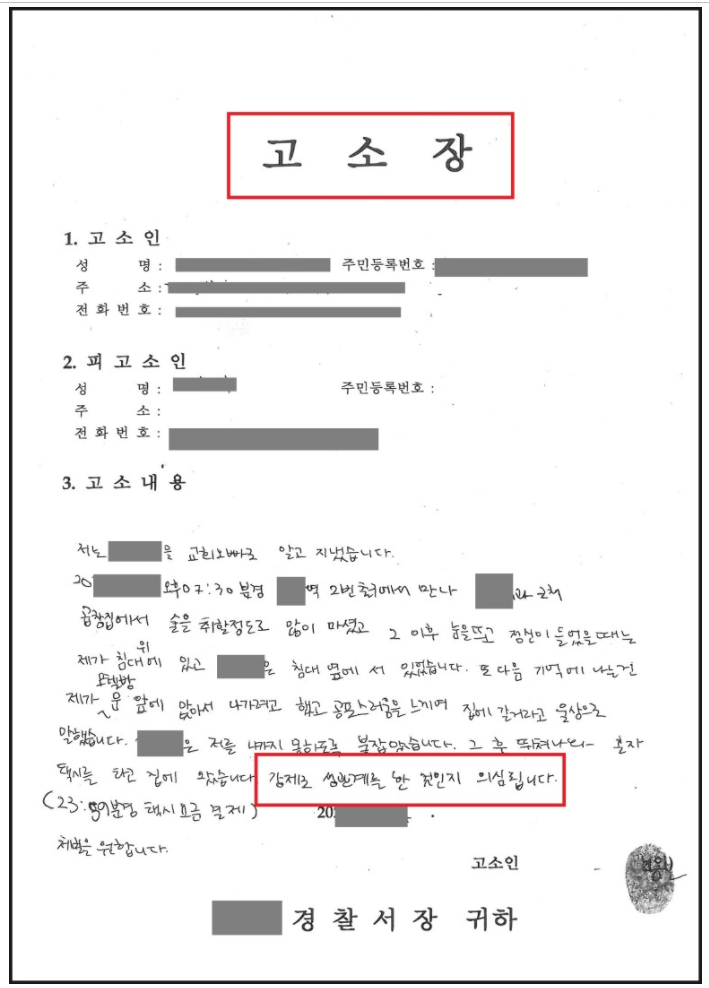 고 소 장
1. 고 소 인
성 명 : 주민등록번호 :
주 소 :
전 화 번 호 :
2. 피 고 소 인
성 명 : 주민등록번호 :
주 소 :
전 화 번 호 :
3. 고 소 내 용
저는 을 교회오빠로 알고 지냈습니다.
20 오후07:30분경 역 2번출구에서 만나 과 근처
곱창집에서 술을 취할정도로 많이 마셨고 그 이후 눈을뜨고 정신이 들었을때는
제가 침대 위에 있고 은 침대 옆에 서 있었습니다. 또 다음 기억에 나는건
제가 모텔방 문 앞에 앉아서 나가려고 했고 공포스러움을 느끼며 집에 갈거라고 울상으로
말했습니다. 은 저를 나가지 못하도록 붙잡았습니다. 그 후 뛰쳐나와 혼자
택시를 타고 집에 왔습니다. 강제로 성관계를 한 것인지 의심됩니다.
(23:59분경 택시요금 결제) 20 .
처벌을 원합니다.
고소인
경 찰 서 장 귀하